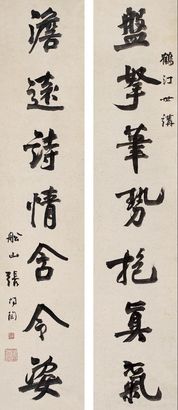 鶴汀世講
盤拏筆勢抱真氣
澹遠詩情含令姿
船山張問陶